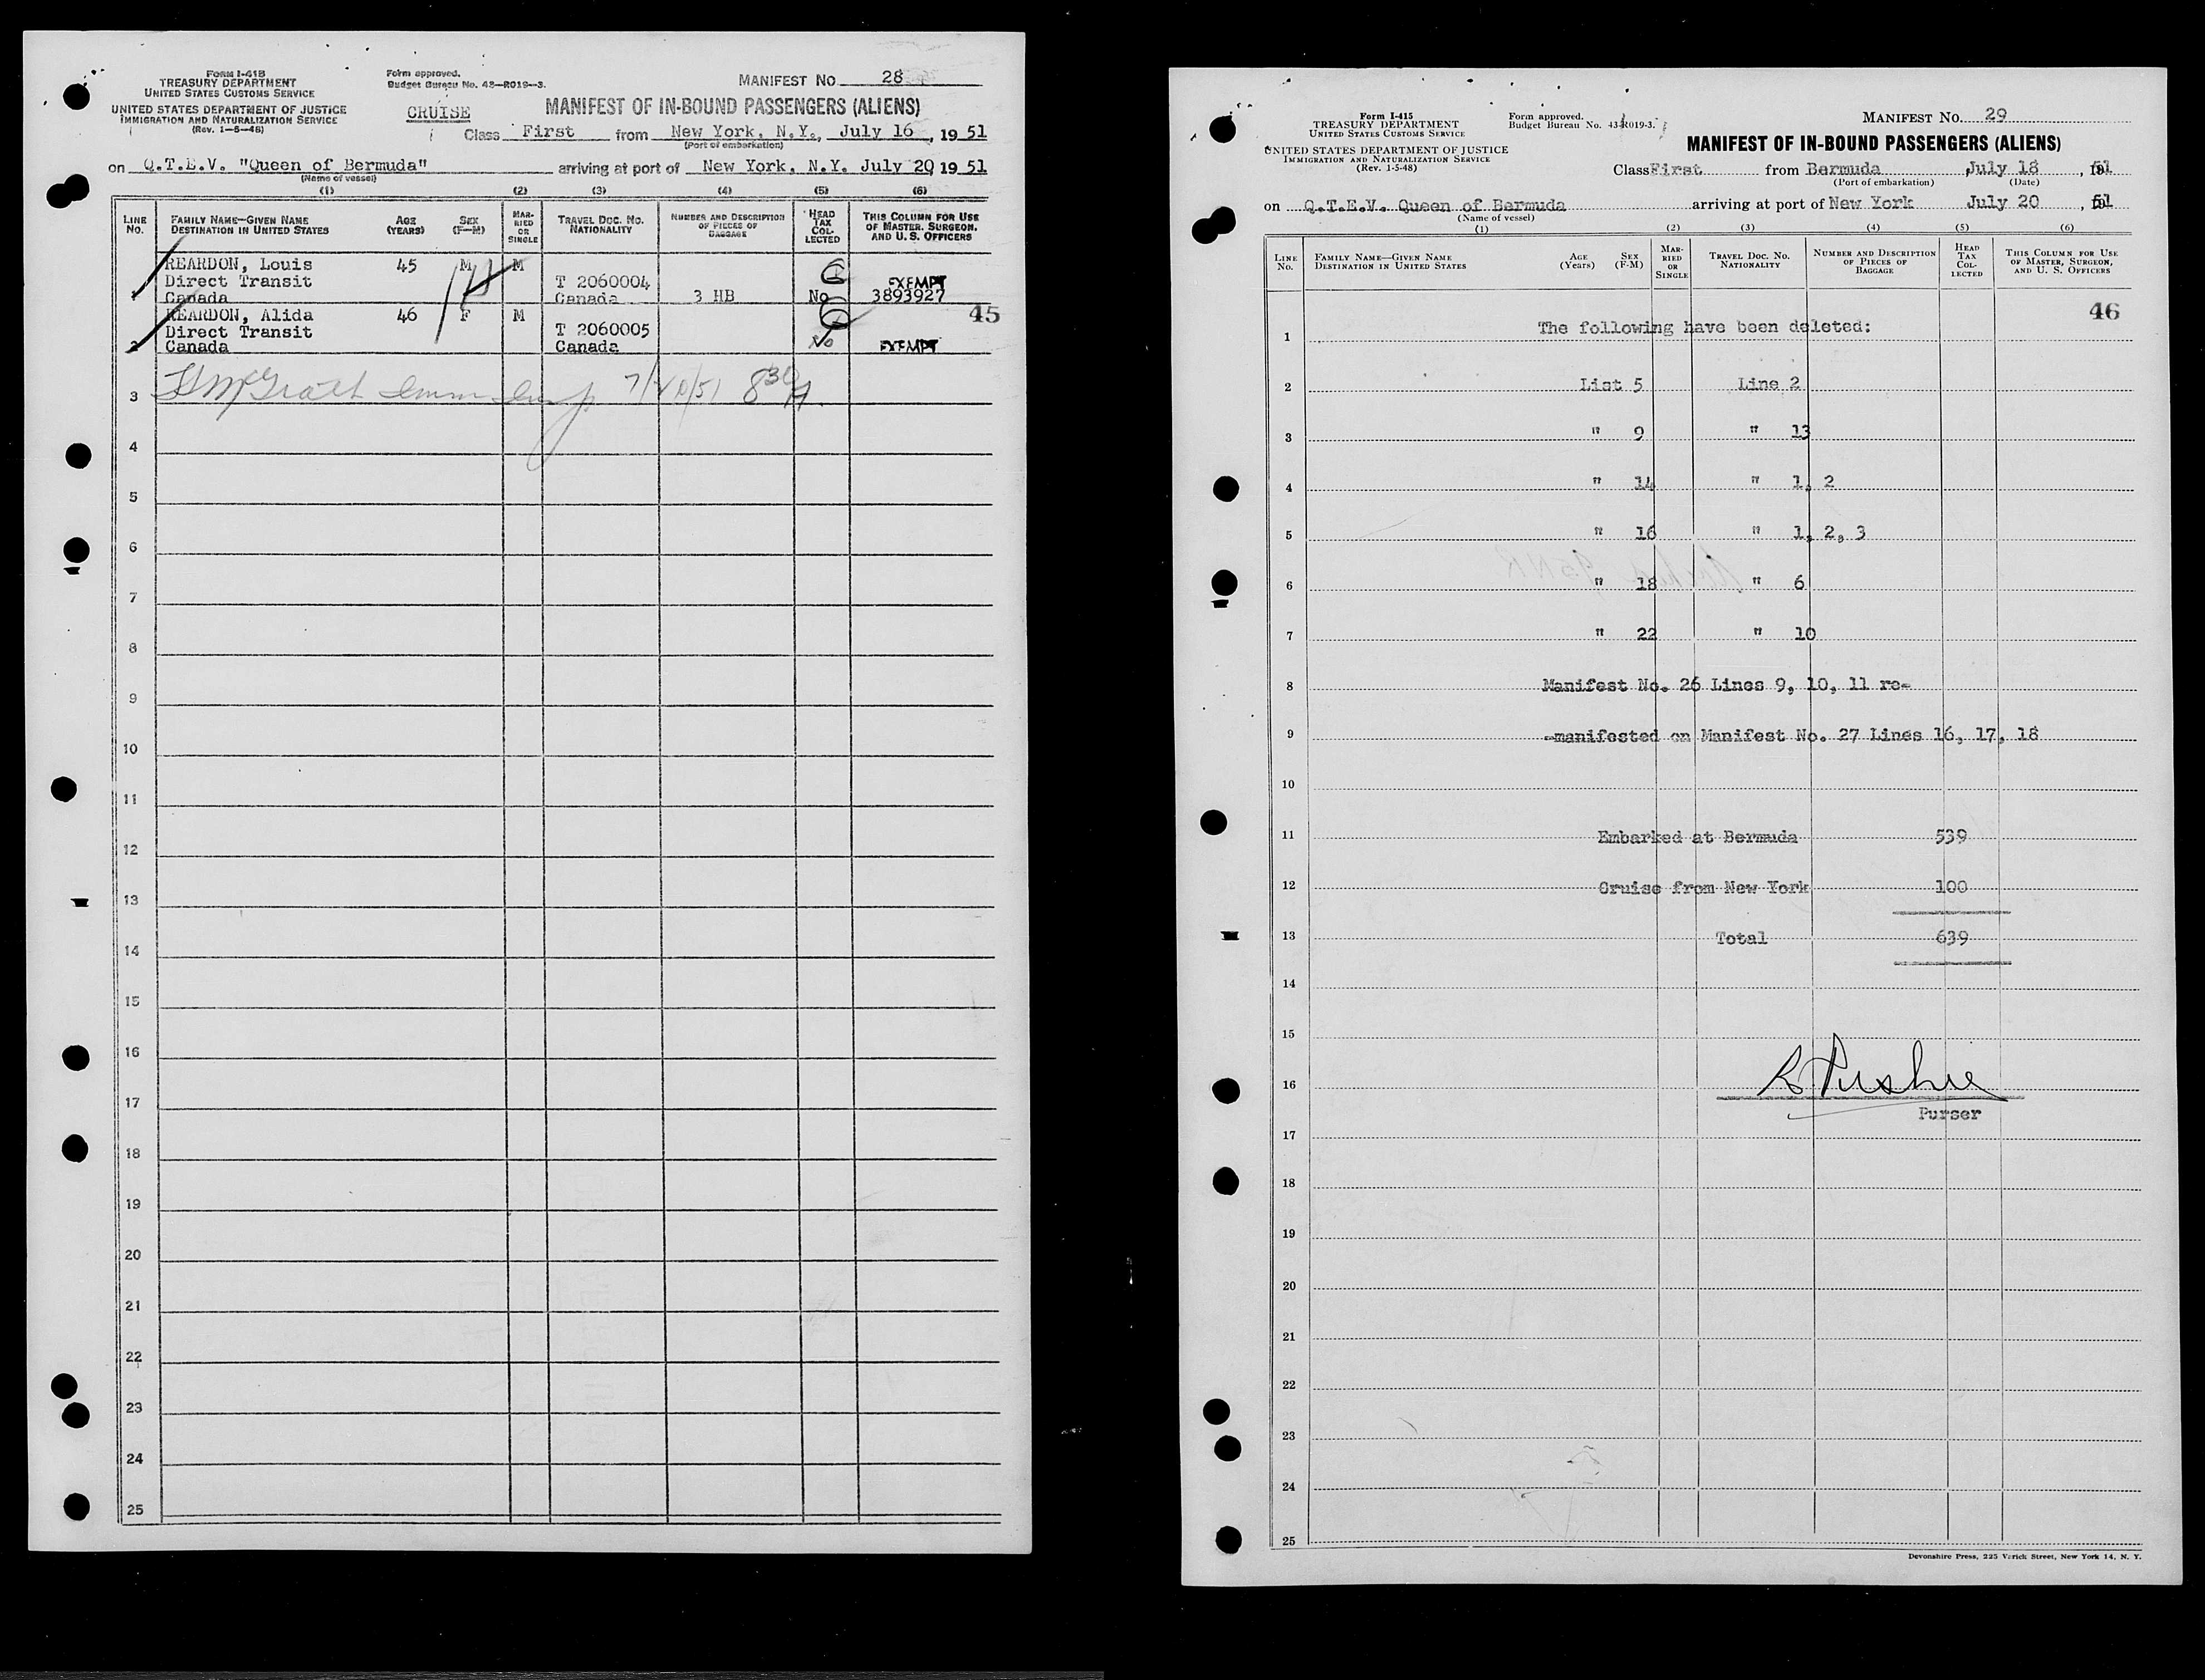 FORM I-418
TREASURY DEPARTMENT
UNITED STATES CUSTOMS SERVICE
UNITED STATES DEPARTMENT OF JUSTICE
IMMIGRATION AND NATURALIZATION SERVICE
(Rev. 1-5-48)
Form approved.
Budget Bureau No. 43-R019-3.
MANIFEST NO. 28
CRUISE
MANIFEST OF IN-BOUND PASSENGERS (ALIENS)
Class First from New York, N.Y., July 16, 1951
(Port of embarkation)
on Q.T.E.V. "Queen of Bermuda" arriving at port of New York, N.Y. July 20 1951
(Name of vessel)
(1) (2) (3) (4) (5) (6)
LINE NO. FAMILY NAME—GIVEN NAME DESTINATION IN UNITED STATES AGE (YEARS) SEX (F-M) MAR-RIED OR SINGLE TRAVEL DOC. NO. NATIONALITY NUMBER AND DESCRIPTION OF PIECES OF BAGGAGE HEAD TAX COL-LECTED THIS COLUMN FOR USE OF MASTER, SURGEON, AND U. S. OFFICERS
REARDON, Louis 45 M M
Direct Transit T 2060004 EXEMPT
1 Canada Canada 3 HB No 3893927
REARDON, Alida 46 F M 45
Direct Transit T 2060005 No
2 Canada Canada EXEMPT
3 7/20/51 8 30 A
4
5
6
7
8
9
10
11
12
13
14
15
16
17
18
19
20
21
22
23
24
25
Form I-415
TREASURY DEPARTMENT
UNITED STATES CUSTOMS SERVICE
UNITED STATES DEPARTMENT OF JUSTICE
IMMIGRATION AND NATURALIZATION SERVICE
(Rev. 1-5-48)
Form approved.
Budget Bureau No. 43-R019-3.
MANIFEST NO. 29
MANIFEST OF IN-BOUND PASSENGERS (ALIENS)
Class First from Bermuda, July 18, 1951
(Port of embarkation) (Date)
on Q.T.E.V. Queen of Bermuda arriving at port of New York July 20, 1951
(Name of vessel)
(1) (2) (3) (4) (5) (6)
LINE NO. FAMILY NAME—GIVEN NAME DESTINATION IN UNITED STATES AGE (Years) SEX (F-M) MAR-RIED OR SINGLE TRAVEL DOC. NO. NATIONALITY NUMBER AND DESCRIPTION OF PIECES OF BAGGAGE HEAD TAX COL-LECTED THIS COLUMN FOR USE OF MASTER, SURGEON, AND U. S. OFFICERS
46
1 The following have been deleted:
2 List 5 Line 2
3 " 9 " 13
4 " 14 " 1, 2
5 " 16 " 1, 2, 3
6 " 18 " 6
7 " 22 " 10
8 Manifest No. 26 Lines 9, 10, 11 re-
9 -manifested on Manifest No. 27 Lines 16, 17, 18
10
11 Embarked at Bermuda 539
12 Cruise from New York 100
13 Total 639
14
15
16
Purser
17
18
19
20
21
22
23
24
25
Devonshire Press, 225 Varick Street, New York 14, N. Y.